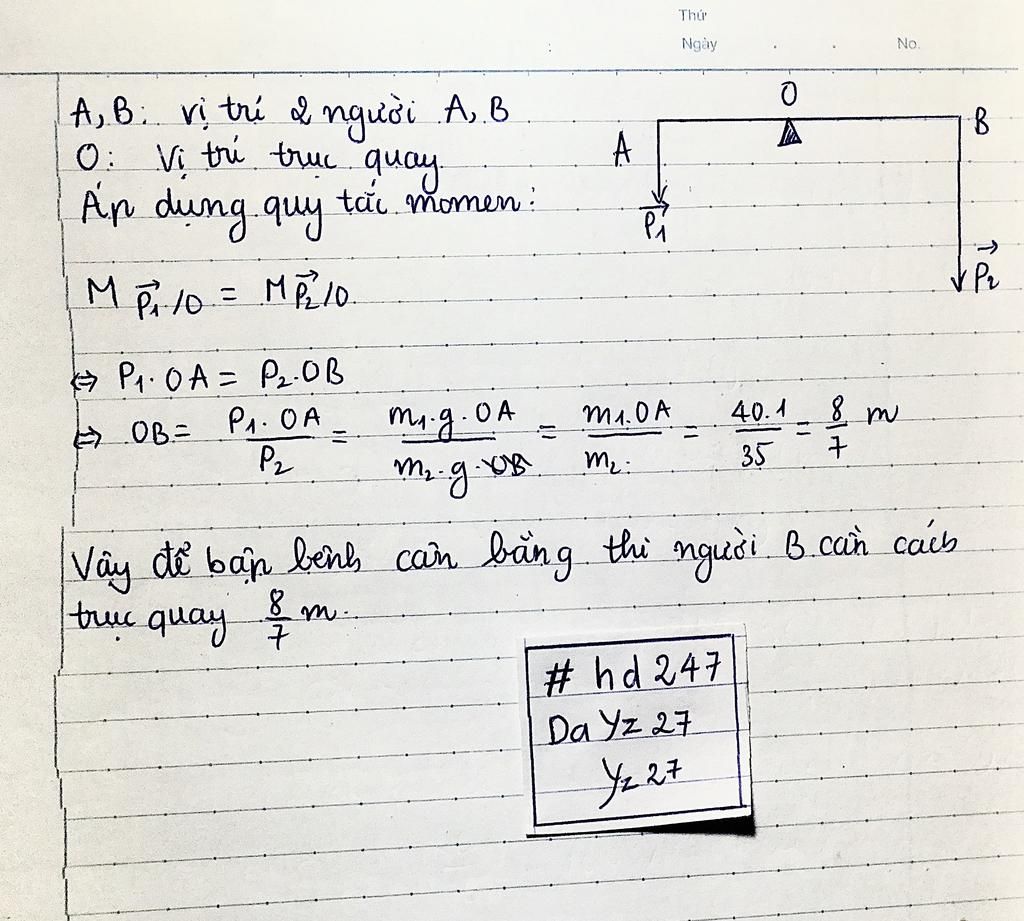 Thứ
Ngày . . No.
A, B: vị trí 2 người A, B
O: Vị trí trục quay
Áp dụng quy tắc momen:
O
A
B
P₁
P₂
M P₁/O = M P₂/O
⇔ P₁.OA = P₂.OB
⇔ OB = P₁.OA / P₂ = m₁.g.OA / m₂.g = m₁.OA / m₂ = 40.1 / 35 = 8/7 m
Vậy để bập bênh cân bằng thì người B cần cách
trục quay 8/7 m.
# hd 247
Da Yz 27
Yz 27